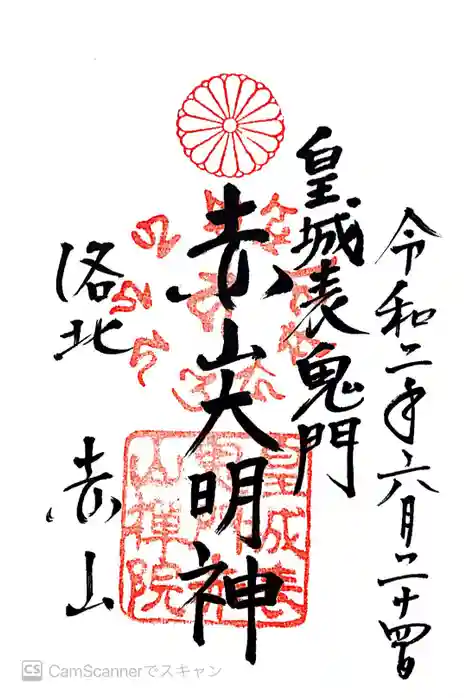 令和二年六月二十四日
皇城表鬼門
赤山大明神
洛北 赤山
CS CamScannerでスキャン